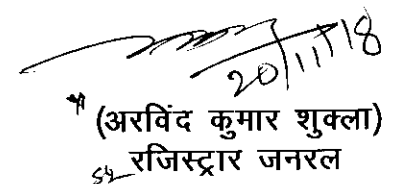 20/11/18
(अरविंद कुमार शुक्ला)
रजिस्ट्रार जनरल